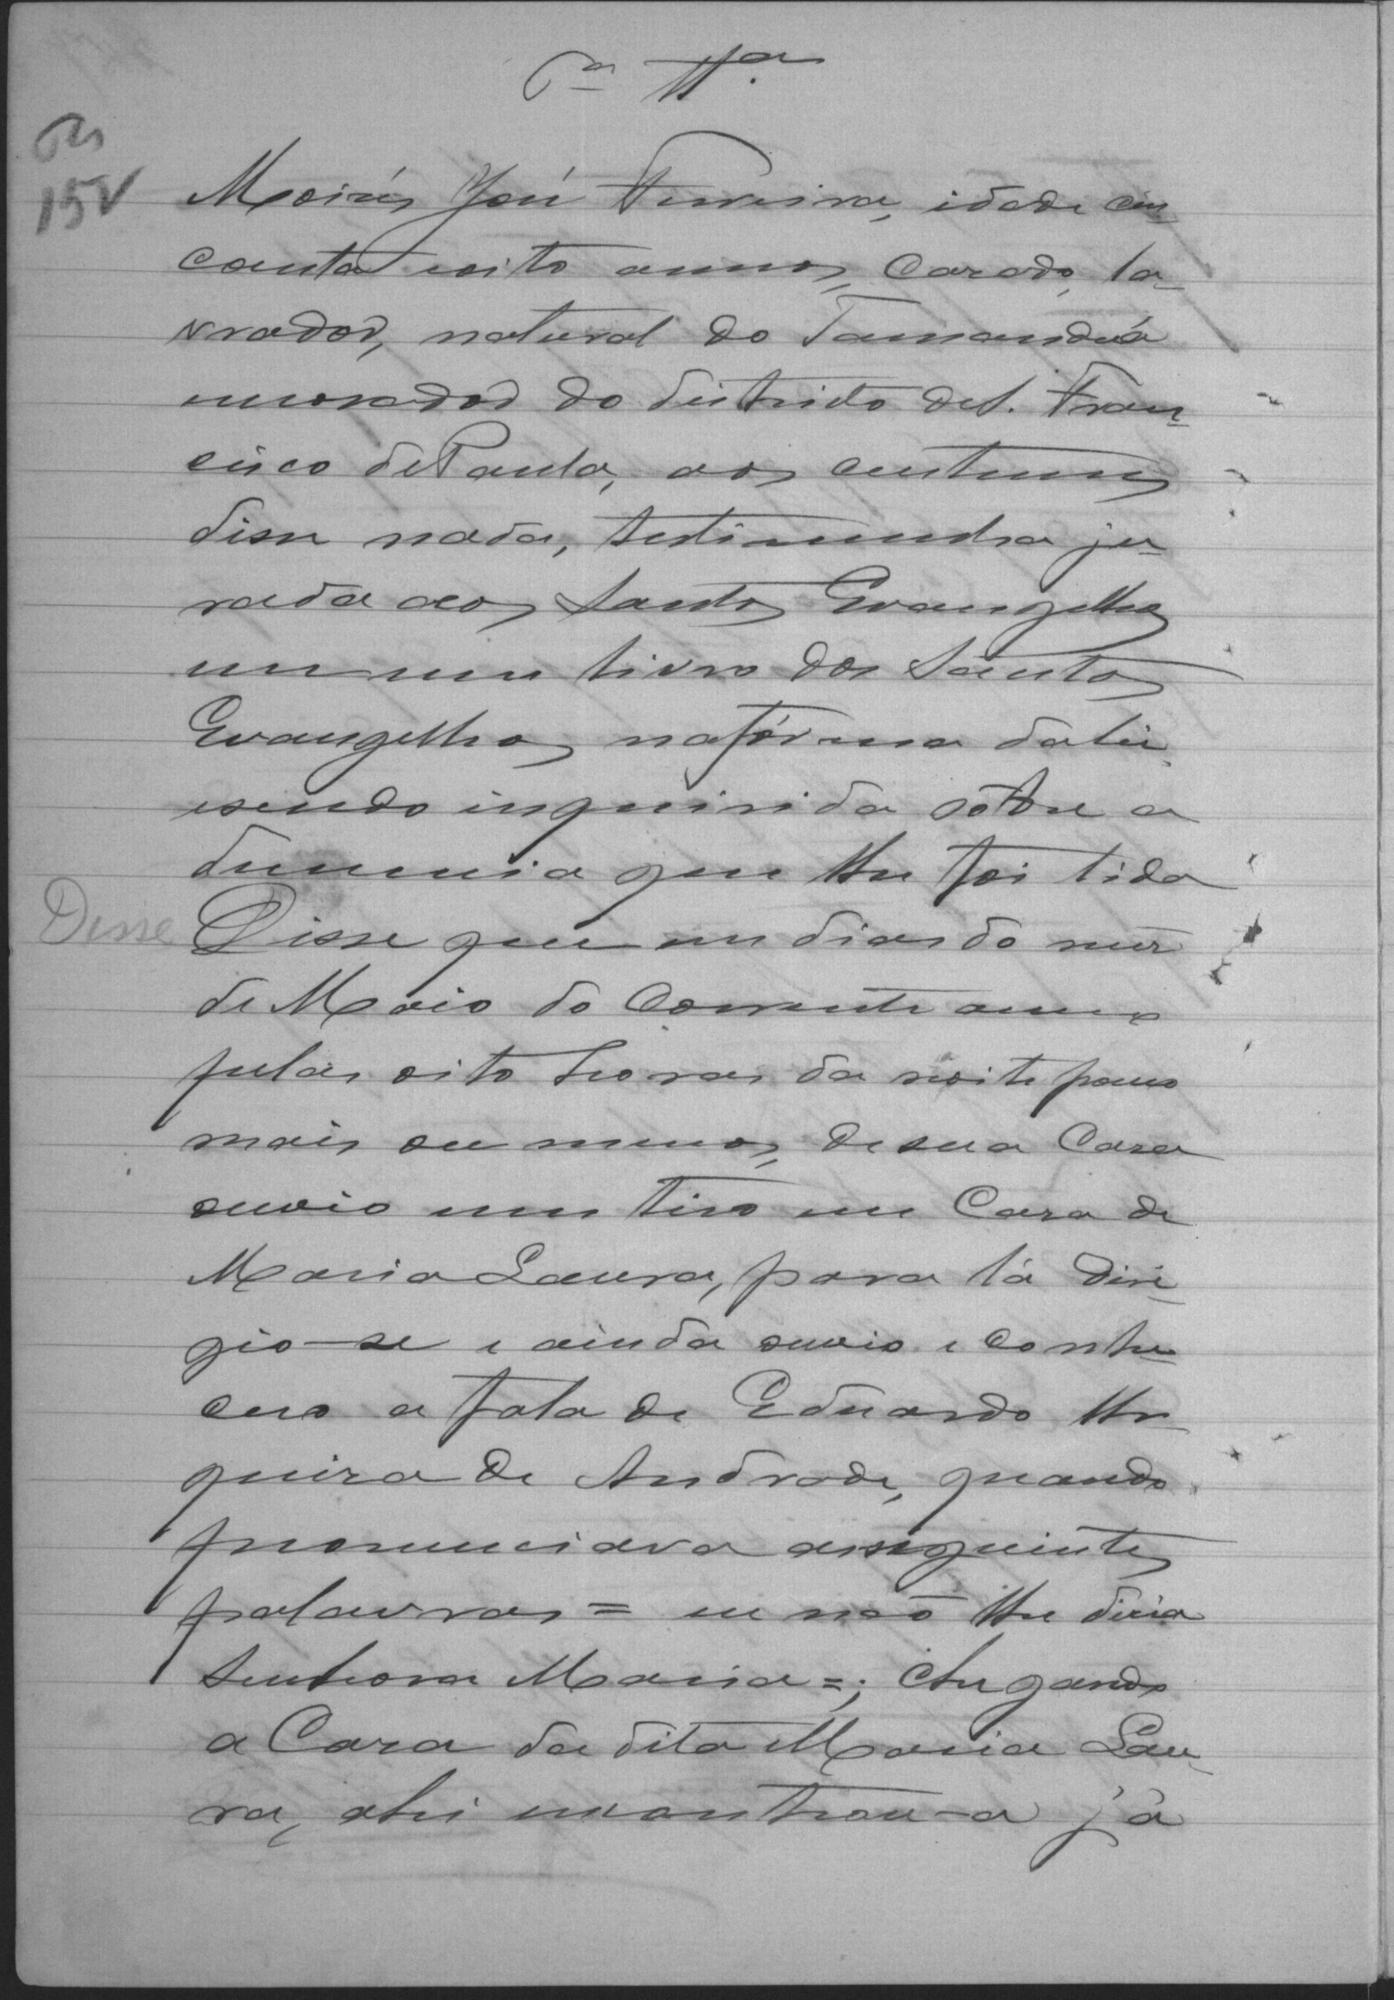 6ª Tª
fls
15V
Moisés José Ferreira, idade cin
coenta e oito annos, Casado, la-
vrador, natural do Tamanduá
emorador do districto de S. Fran
cisco de Paula, aos custumes
disse nada, testimunha ju-
rada aos Santos Evangelhos
em um livro dos Santos
Evangelhos naforma dalei
esendo inquirida sobre a
denuncia que lhe foi lida
Disse Disse que em dias do mez
de Maio do Corrente anno
pelas oito horas da noite pouco
mais ou menos, de sua Casa
ouvio um tiro em Casa de
Maria Laura, para lá diri-
gio-se e ainda ouvio e conhe-
ceu a fala de Eduardo
de Andrade, quando
pronunciava asseguintes
palavras = eu não lhe dicia
Senhora Maria =; Chegando
a Casa da dita Maria Lau-
ra, ahi encontrou-a já